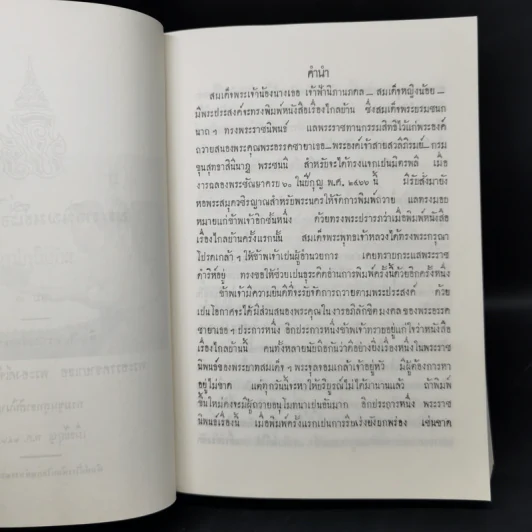 คำนำ
สมเด็จพระเจ้าน้องนางเธอ เจ้าฟ้านิภานภดล — สมเด็จหญิงน้อย —
มีพระประสงค์จะทรงพิมพ์หนังสือเรื่องไกลบ้าน ซึ่งสมเด็จพระบรมชนก
นาถ ฯ ทรงพระราชนิพนธ์ แลพระราชทานกรรมสิทธิไว้แก่พระองค์
ถวายสนองพระคุณพระอรรคชายาเธอ — พระองค์เจ้าสายสวลีภิรมย์ — กรม
ขุนสุทธาสินีนาฏ พระชนนี สำหรับจะได้ทรงแจกเป็นมิตรพลี เมื่อ
งารฉลองพระชัณษาครบ ๖๐ ในปีกุญ พ.ศ. ๒๔๖๖ นี้ มีรับสั่งมายัง
หอพระสมุดวชิรญาณสำหรับพระนครให้จัดการพิมพ์ถวาย แลทรงมอบ
หมายแก่ข้าพเจ้าอีกชั้นหนึ่ง ด้วยทรงพระปรารภว่าเมื่อพิมพ์หนังสือ
เรื่องไกลบ้านครั้งแรกนั้น สมเด็จพระพุทธเจ้าหลวงได้ทรงพระกรุณา
โปรดเกล้า ฯ ให้ข้าพเจ้าเป็นผู้อำนวยการ เคยทราบกระแสพระราช
ดำริห์อยู่ ทรงขอให้ช่วยเป็นธุระคิดอ่านการพิมพ์ครั้งนี้ด้วยอีกครั้งหนึ่ง
ข้าพเจ้ามีความยินดีที่จะรับจัดการถวายตามพระประสงค์ ด้วย
เป็นโอกาศจะได้มีส่วนสนองพระคุณในการอภิลักขิตมงคลของพระอรรค
ชายาเธอ ฯ ประการหนึ่ง อีกประการหนึ่งข้าพเจ้าทราบอยู่แก่ใจว่าหนังสือ
เรื่องไกลบ้านนี้ คนทั้งหลายนับถือกันว่าดีอย่างยิ่งเรื่องหนึ่งในพระราช
นิพนธ์ของพระบาทสมเด็จ ฯ พระจุลจอมเกล้าเจ้าอยู่หัว มีผู้ต้องการหา
อยู่ไม่ขาด แต่ทุกวันนี้จะหาให้บริบูรณ์ไม่ได้มานานแล้ว ถ้าพิมพ์
ขึ้นใหม่คงจะมีผู้ถวายอนุโมทนาเป็นอันมาก อีกประการหนึ่ง พระราช
นิพนธ์เรื่องนี้ เมื่อพิมพ์ครั้งแรกเป็นการรีบเร่งยังบกพร่อง เช่นขาด